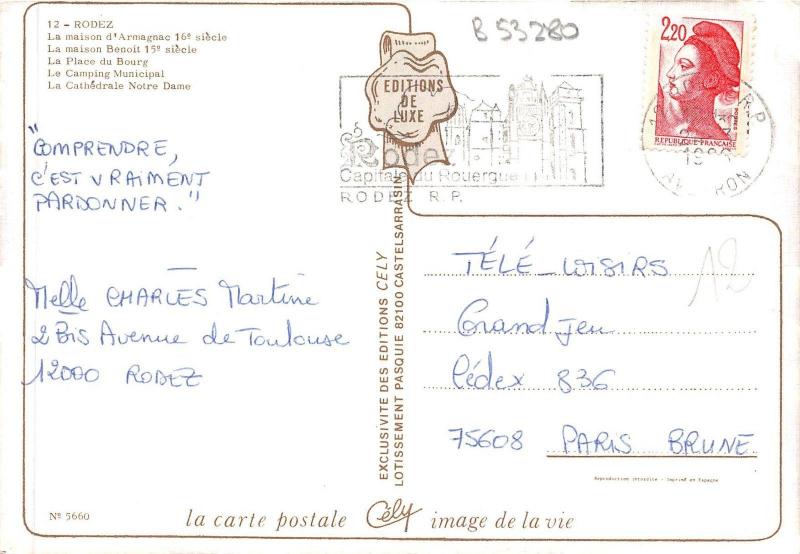 12 - RODEZ
La maison d'Armagnac 16e siècle
La maison Benoit 15e siècle
La Place du Bourg
Le Camping Municipal
La Cathédrale Notre Dame
B 53280
EDITIONS
DE
LUXE
Rodez
Capitale du Rouergue
RODEZ R.P.
2,20
REPUBLIQUE FRANÇAISE
"COMPRENDRE,
C'EST VRAIMENT
PARDONNER."
Melle CHARLES Martine
2 Bis Avenue de Toulouse
12000 RODEZ
EXCLUSIVITE DES EDITIONS CELY
LOTISSEMENT PASQUIE 82100 CASTELSARRASIN
TÉLÉ-LOISIRS
Grand Jeu
Cédex 836
75608 PARIS BRUNE
A2
Reproduction interdite - Imprimé en Espagne
No 5660
la carte postale Cély image de la vie